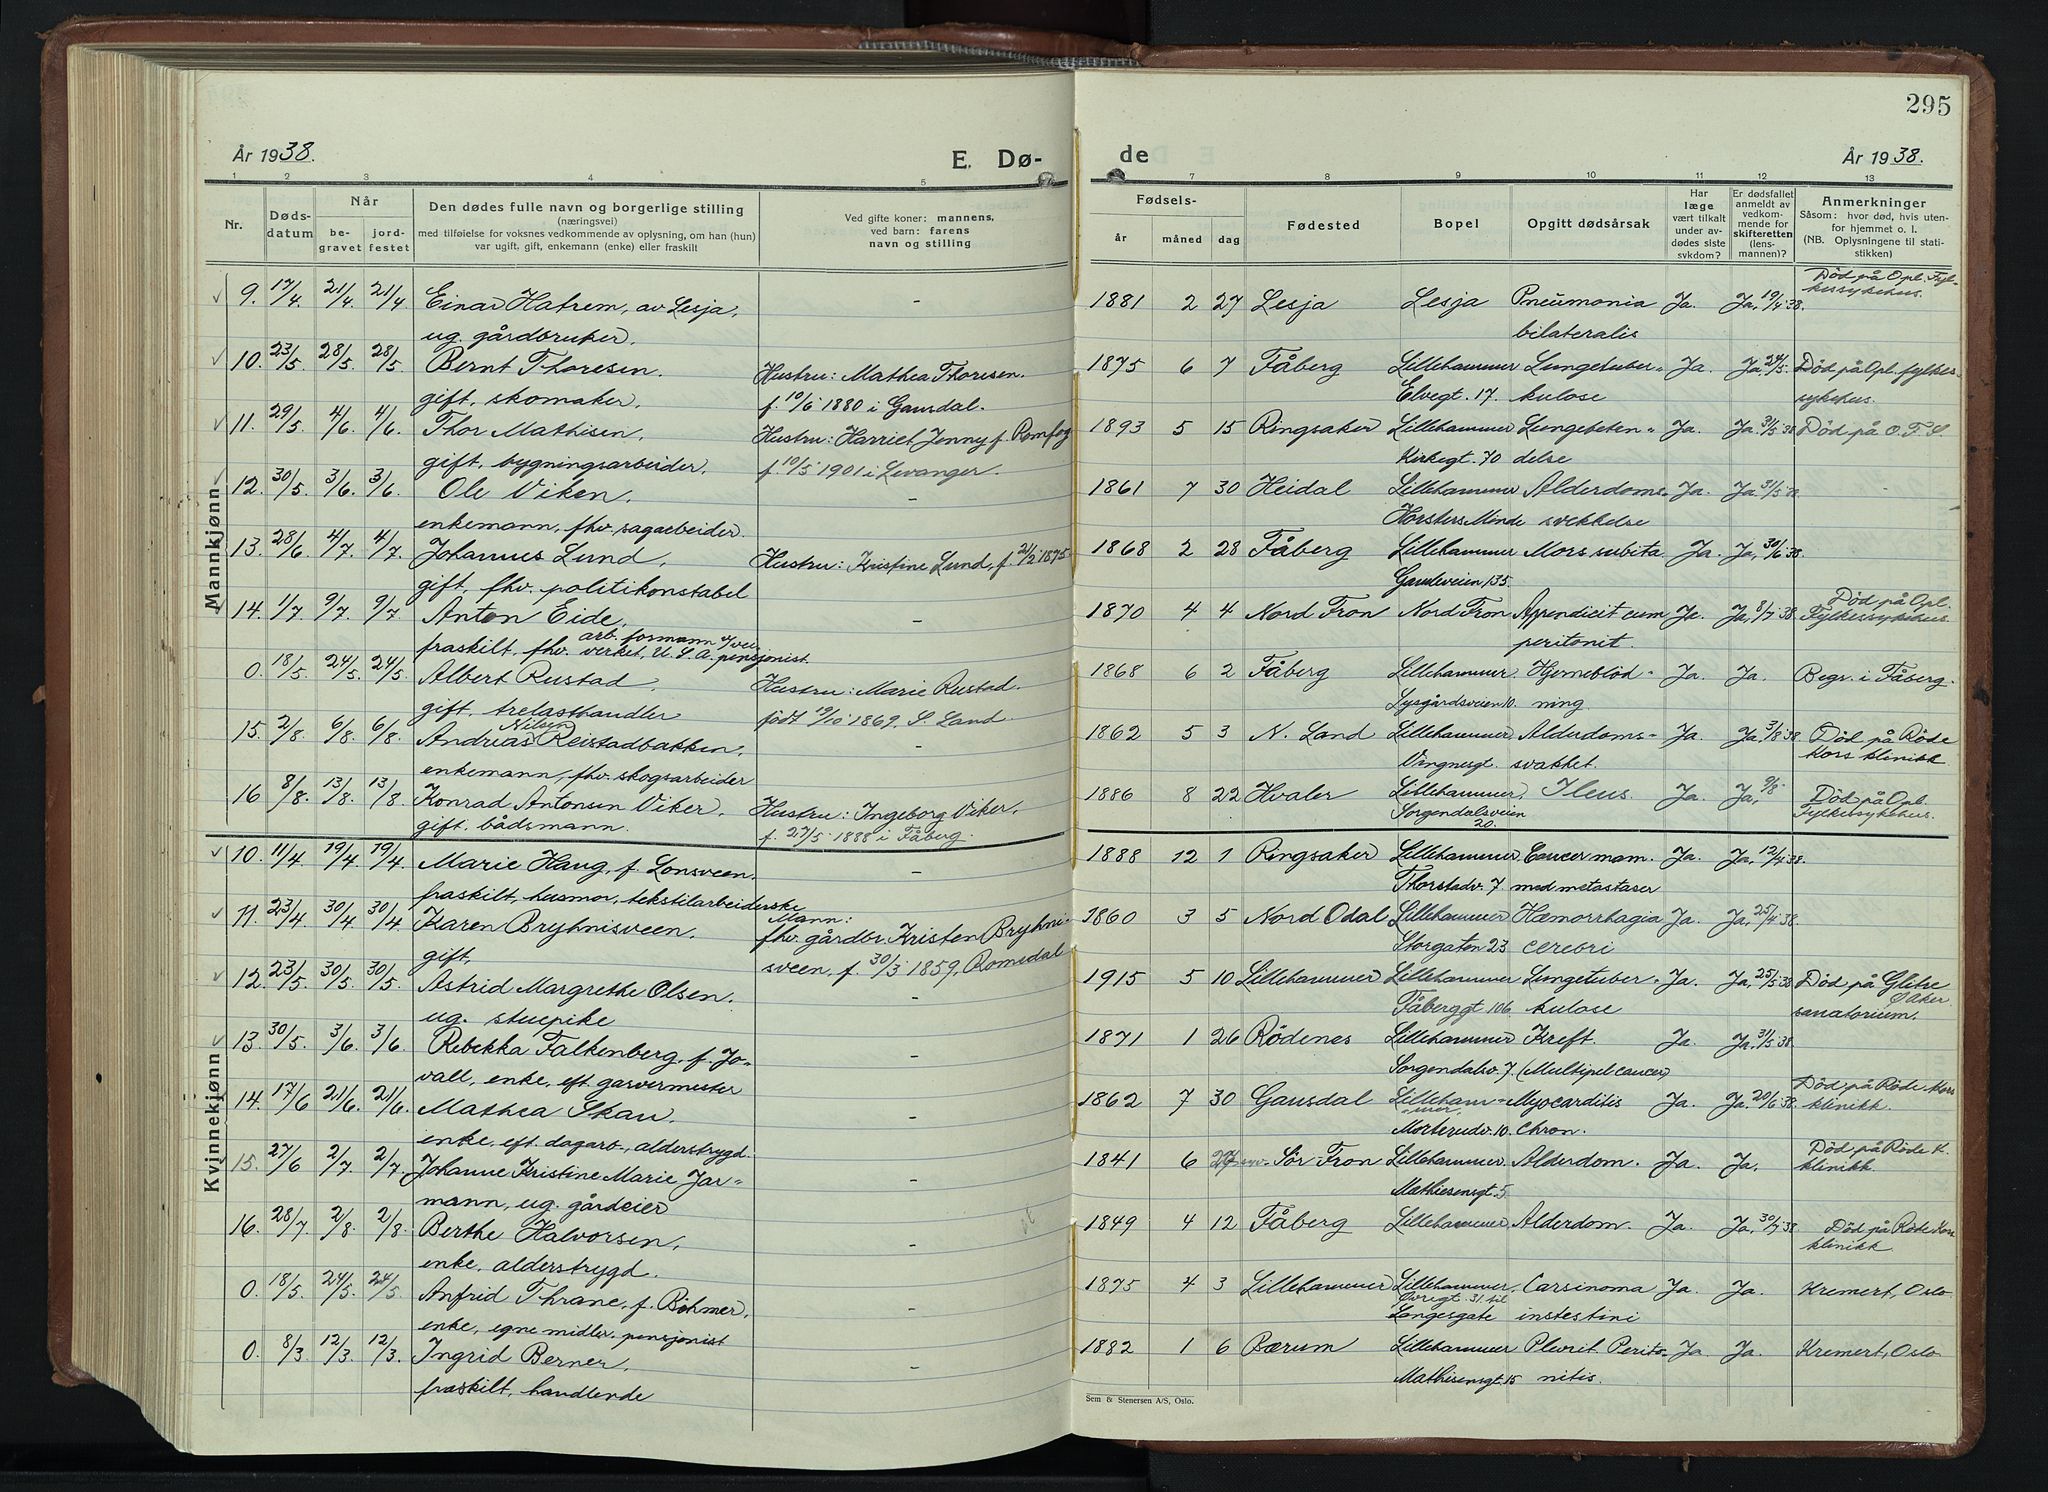 295
År 1938.
E. Dø-
de
År 1938.
1 2 3 4 5
7 8 9 10 11 12 13
Nr.
Døds-
datum
Når
be-
gravet
jord-
festet
Den dødes fulle navn og borgerlige stilling
(næringsvei)
med tilføielse for voksnes vedkommende av oplysning, om han (hun)
var ugift, gift, enkemann (enke) eller fraskilt
Ved gifte koner: mannens,
ved barn: farens
navn og stilling
Fødsels-
år måned dag
Fødested
Bopel
Opgitt dødsårsak
Har
læge
vært tilkalt
under av-
dødes siste
sykdom?
Er dødsfallet
anmeldt av
vedkom-
mende for
skifteretten
(lens-
mannen)?
Anmerkninger
Såsom: hvor død, hvis uten-
for hjemmet o. l.
(NB. Oplysningene til stati-
stikken)
Mannkjønn
9. 17/4. 21/4. 21/4 Einar Hatrem, av Lesja, - 1881 2 27 Lesja Lesja Pneumonia Ja. Ja, 19/4 38. Død på Opl. Fyl-
ug. gårdbruker. bilateralis kessykehus.
10. 23/5. 28/5. 28/5 Bernt Thoresen. Hustru: Mathea Thoresen. 1875 6 7 Fåberg Lillehammer Lungetuber- Ja. Ja 24/5. Død på Opl. fylkes-
gift, skomaker. f. 10/6 1880 i Gausdal. Elvegt. 17. kulose sykehus.
11. 29/5. 4/6. 4/6. Thor Mathisen, Hustru: Harriet Jenny f. Romfog 1893 5 15 Ringsaker Lillehammer Lungebeten- Ja. Ja 31/5 38 Død på O. F. S.
gift, bygningsarbeider. f. 10/5 1901 i Levanger. Kirkegt. 70 delse
12. 30/5. 3/6. 3/6. Ole Viken, - 1861 7 30 Heidal Lillehammer Alderdoms- Ja. Ja 31/5
enkemann, fhv. sagarbeider. Horsters Minde svekkelse
13. 28/6. 4/7. 4/7. Johannes Lund, Hustru: Kristine Lund, f. 21/2 1875 1868 2 28 Fåberg Lillehammer Mors subita Ja. Ja, 30/6 38.
gift, fhv. politikonstabel Gausdalveien 135.
14. 1/7. 9/7. 9/7. Anton Eide, - 1870 4 4 Nord Fron Nord Fron Appendicit cum Ja. Ja, 8/7 38. Død på Opl.
arb. formann v/vei
fraskilt, fhv. virket, U. S. A. pensjonist. peritonit. Fylkessykehus.
0. 18/5. 24/5. 24/5. Albert Rustad, Hustru: Marie Rustad. 1868 6 2 Fåberg Lillehammer. Hjerneblød- Ja. Ja. Begr. i Fåberg.
gift, trelasthandler født 19/10 1869. S. Land. Lysgårdsveien 10. ning
15. 2/8. 6/8. 6/8. Andreas Nilsen Reistadbakken, - 1862 5 3 N. Land Lillehammer Alderdoms- Ja. Ja 3/8 38 Død på Røde
enkemann, fhv. skogsarbeider Vingnesgt. svakhet. Kors klinikk
16 8/8. 13/8. 13/8. Konrad Antonsen Viker. Hustru: Ingeborg Viker. 1886 8 22 Hvaler Lillehammer, Ileus. Ja. Ja, 9/8. Død på Opl.
gift. bådsmann. f. 27/5 1888 i Fåberg. Sorgendalsveien 20. Fylkessykehus.
Kvinnekjønn
10. 11/4 19/4 19/4 Marie Haug, f. Lonsveen. - 1888 12 1 Ringsaker Lillehammer Cancer mam. Ja. Ja, 12/4 38.
fraskilt, husmor, tekstilarbeiderske Thorstadv. 7 med metastaser
11. 23/4 30/4 30/4 Karen Bryhnisveen. Mann: 1860 3 5 Nord Odal Lillehammer Hæmorrhagia Ja. Ja, 25/4 38.
gift, fhv. gårdbr. Kristen Bryhni- Storgaten 23 cerebri
sveen, f. 30/3 1859, Romsdal
12. 23/5. 30/5. 30/5. Astrid Margrethe Olsen. - 1915 5 10 Lillehammer Lillehammer Lungetuber- Ja. Ja, 25/5 38 Død på Glitre
ug. stuepike Fåberggt 106. kulose sanatorium. Ø Aker
13. 30/5. 3/6. 3/6. Rebekka Falkenberg, f. Jo- - 1871 1 26 Rødenes Lillehammer Kreft. Ja. Ja. 31/5 38
vall, enke, eft. garvermester Sorgendalsv. 7. (Multipel cancer)
14. 17/6 21/6. 21/6. Mathea Skau, - 1862 7 30 Gausdal Lilleham- Myocarditis Ja. Ja 20/6 38. Død på Røde Kors
mer. klinikk.
enke, eft. dagarb., alderstrygd. Morterudv. 10. Chron.
15. 27/6 2/7. 2/7. Johanne Kristine Marie Jar- - 1841 6 Sør Fron Lillehammer. Alderdom. Ja. Ja, Død på Røde K.
mann, ug. gårdeier Mathiesensgt. 5 klinikk
16. 28/7 2/8. 2/8. Berthe Halvorsen, - 1849 4 12 Fåberg Lillehammer Alderdom. Ja. Ja, 30/7 38. Død på Røde Kors
enke, alderstrygd. klinikk
0. 18/5. 24/5. 24/5 Anfrid Thrane, f. Bøhmer, - 1875 4 3 Lillehammer Lillehammer, Carsinoma Ja. Ja. Kremert, Oslo
Øvregt. 31. til
enke, egne midler. pensjonist Langesgate instestini
0. 8/3 12/3. 12/3. Ingrid Berner, - 1882 1 6 Bærum Lillehammer Plevrit. Perito- Ja. Ja. Kremert, Oslo
fraskilt, handlende Mathisensgt. 15 nitis.
Sem & Stenersen A/S, Oslo.